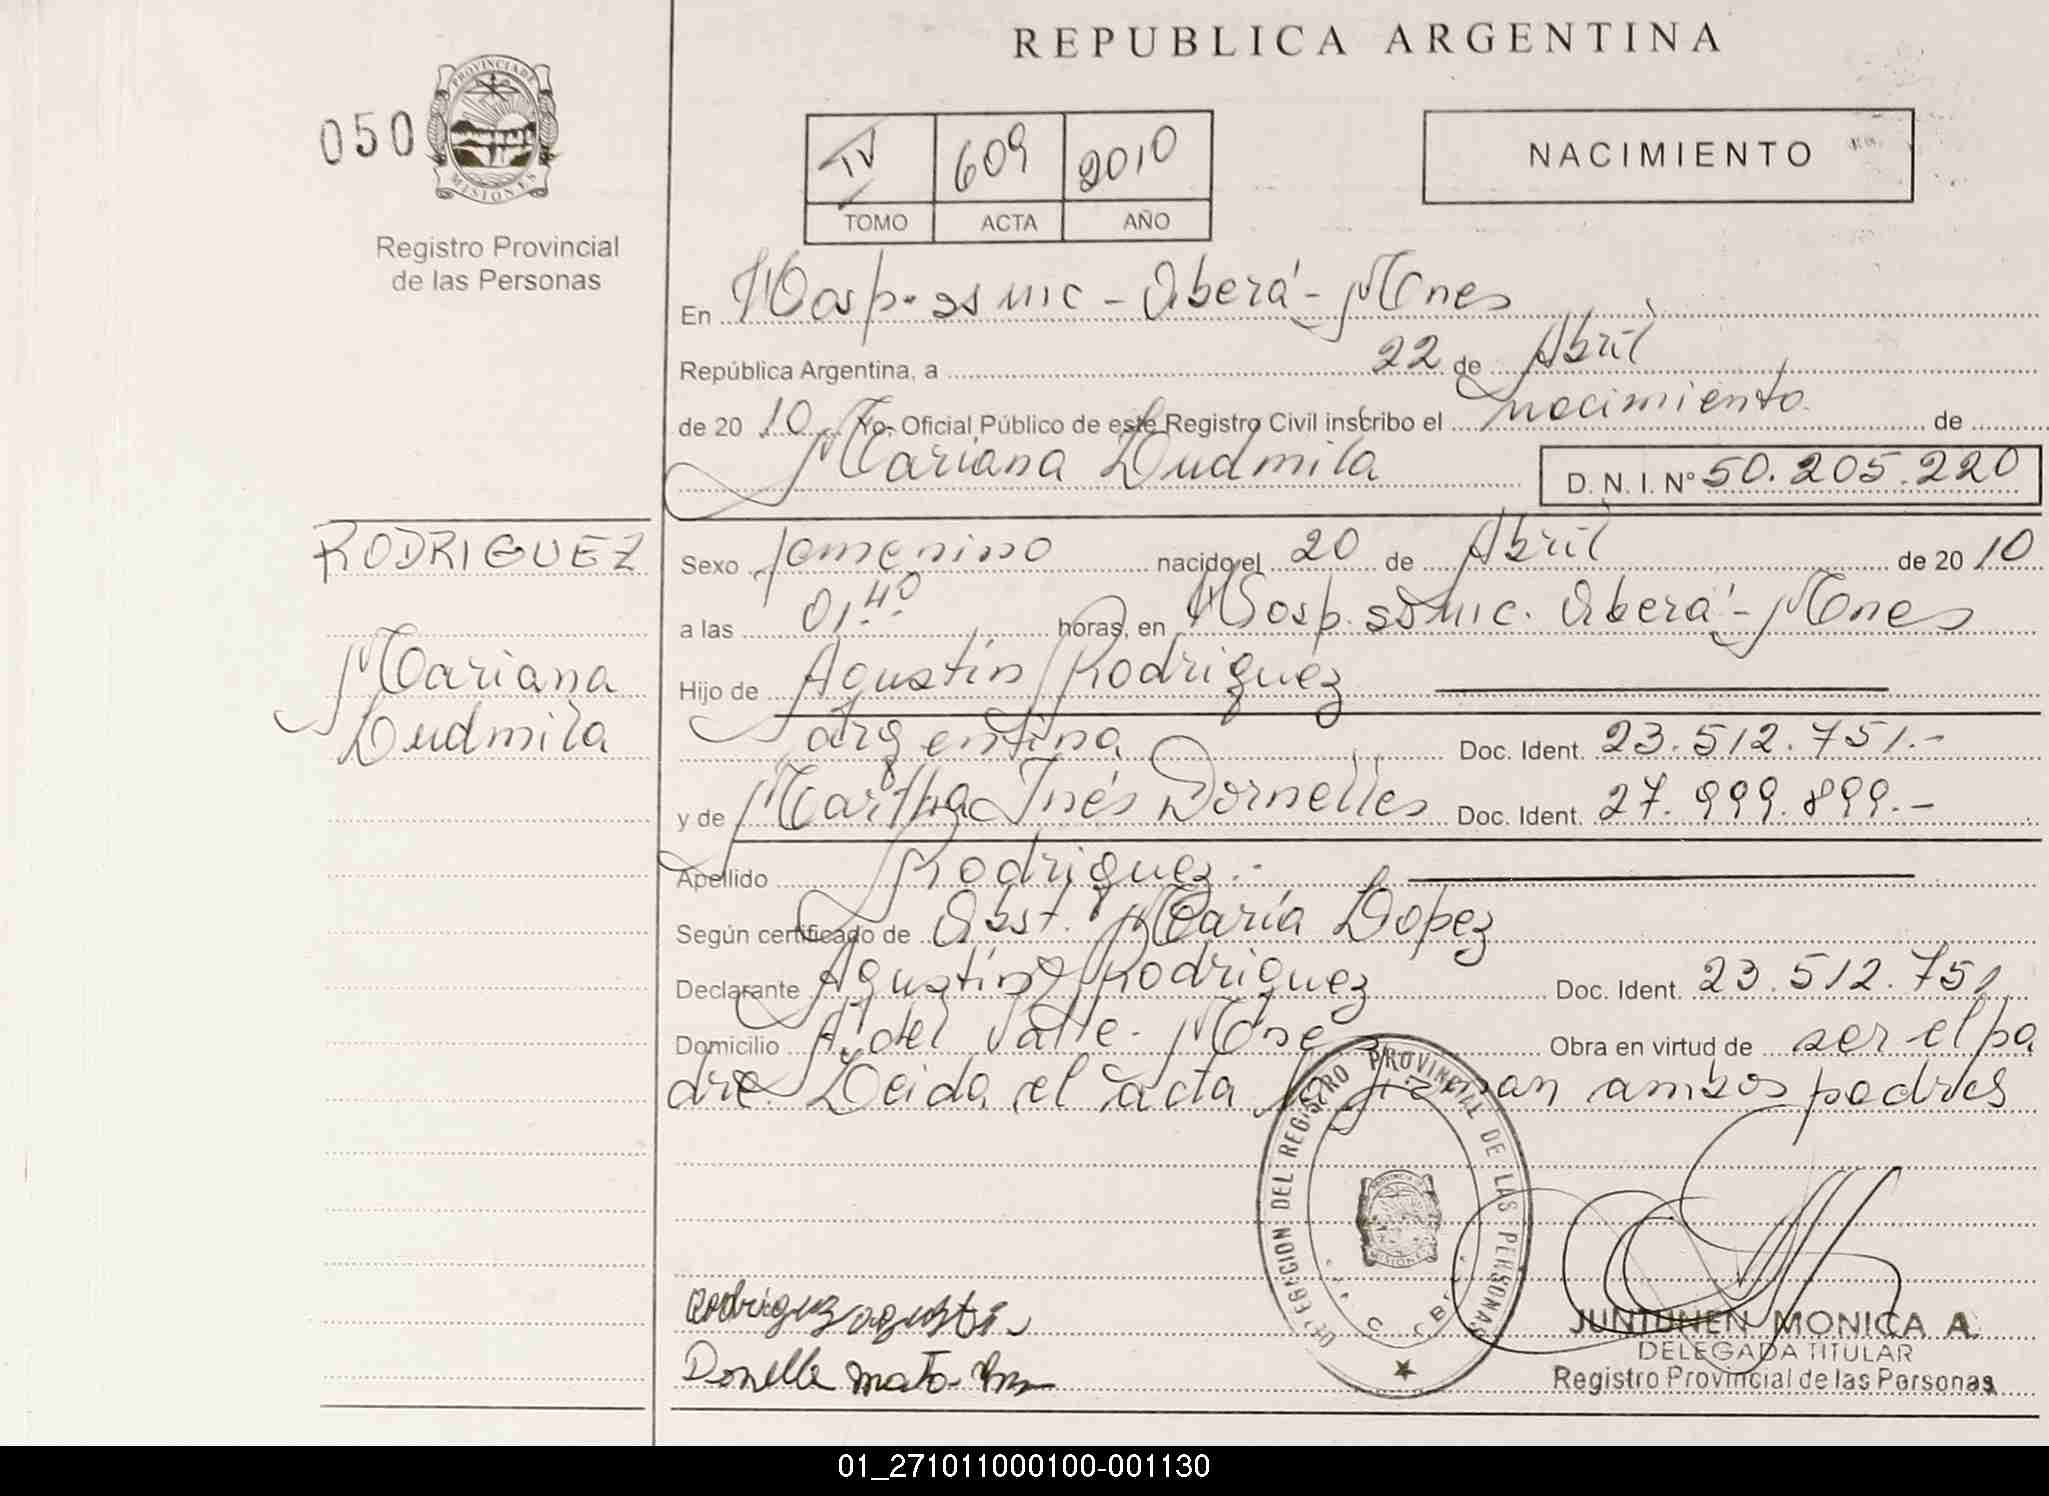 REPUBLICA ARGENTINA
050
PROVINCIA DE
MISIONES
Registro Provincial
de las Personas
IV 609 2010
TOMO ACTA AÑO
NACIMIENTO
En Hosp. ss mic - Oberá - Mnes
República Argentina, a 22 de Abril
de 20 10 Yo, Oficial Público de este Registro Civil inscribo el nacimiento de
Mariana Ludmila
D. N. I. Nº 50.205.220
RODRIGUEZ
Mariana
Ludmila
Sexo femenino nacido el 20 de Abril de 20 10
a las 01.40 horas, en Hosp. ss mic. Oberá - Mnes
Hijo de Agustín Rodriguez
argentina Doc. Ident. 23.512.751.-
y de Martha Inés Dornelles Doc. Ident. 27.999.899.-
Apellido Rodriguez.-
Según certificado de Obst. María Lopez
Declarante Agustín Rodriguez Doc. Ident. 23.512.751
Domicilio A. del Valle. Mnes Obra en virtud de ser el pa
dre. Leida el acta la firman ambos padres
DELEGACION DEL REGISTRO PROVINCIAL DE LAS PERSONAS
PROVINCIA DE
MISIONES
Rodriguez agustin
JUNTUNEN MONICA A.
DELEGADA TITULAR
Registro Provincial de las Personas
01_271011000100-001130